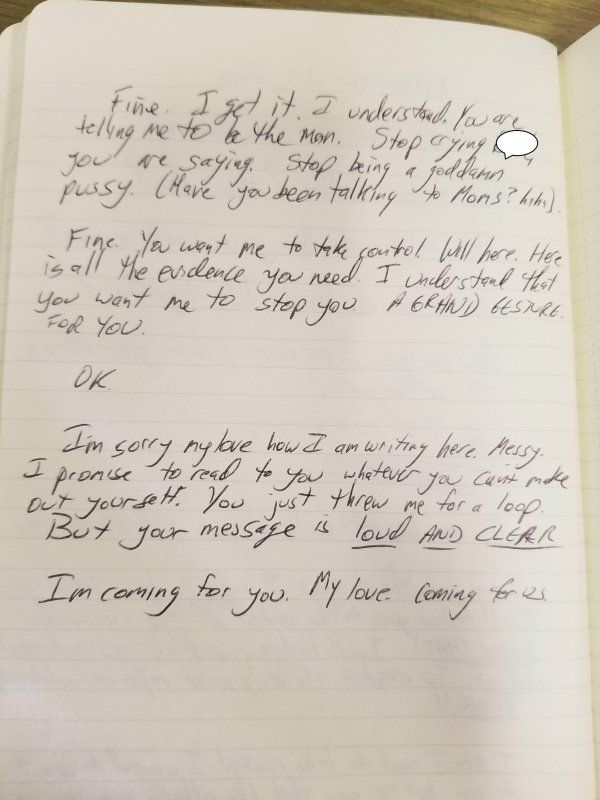 Fine. I get it. I understand. You are
telling me to be the man. Stop crying
you are saying. Stop being a goddamn
pussy. (Have you been talking to Moms? haha).
Fine. You want me to take control. Will here. Here
is all the evidence you need. I understand that
you want me to stop you. A GRAND GESTURE.
FOR YOU.
OK.
I'm sorry my love how I am writing here. Messy.
I promise to read to you whatever you can't make
out yourself. You just threw me for a loop.
But your message is loud AND CLEAR
I'm coming for you. My love. Coming for us.